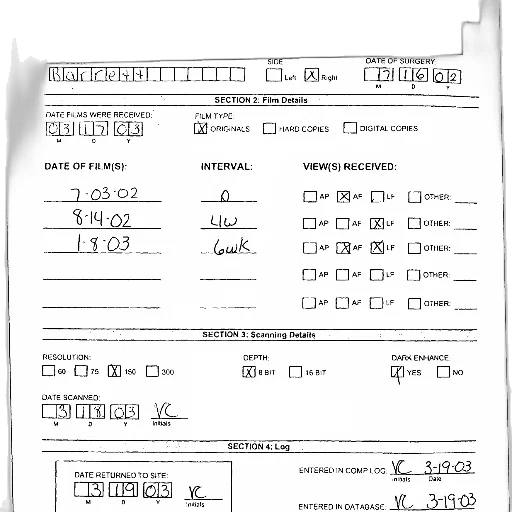 SIDE DATE OF SURGERY
Barrett Left X Right 7 16 02
M D Y
SECTION 2: Film Details
DATE FILMS WERE RECEIVED: FILM TYPE:
03 17 03 X ORIGINALS HARD COPIES DIGITAL COPIES
M D Y
DATE OF FILM(S): INTERVAL: VIEW(S) RECEIVED:
7-03-02 0 AP X AF LF OTHER:
8-14-02 4W AP AF X LF OTHER:
1-8-03 6wk AP X AF X LF OTHER:
AP AF LF OTHER:
AP AF LF OTHER:
SECTION 3: Scanning Details
RESOLUTION: DEPTH: DARK ENHANCE:
60 75 X 150 300 X 8 BIT 16 BIT X YES NO
DATE SCANNED:
3 18 03 VC
M D Y Initials
SECTION 4: Log
DATE RETURNED TO SITE: ENTERED IN COMP LOG: VC 3-19-03
Initials Date
3 19 03 VC
M D Y Initials
ENTERED IN DATABASE: VC 3-19-03